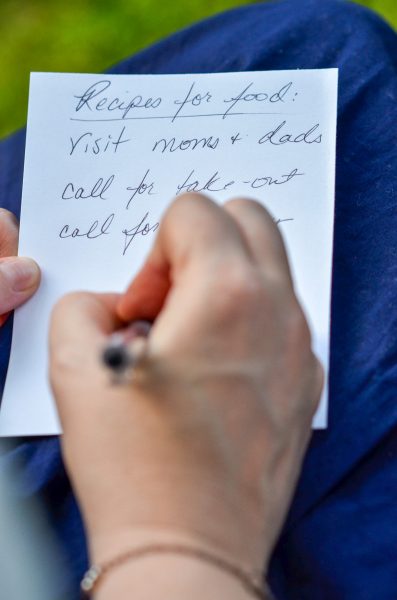 Recipes for food:
visit moms + dads
call for take-out
call for